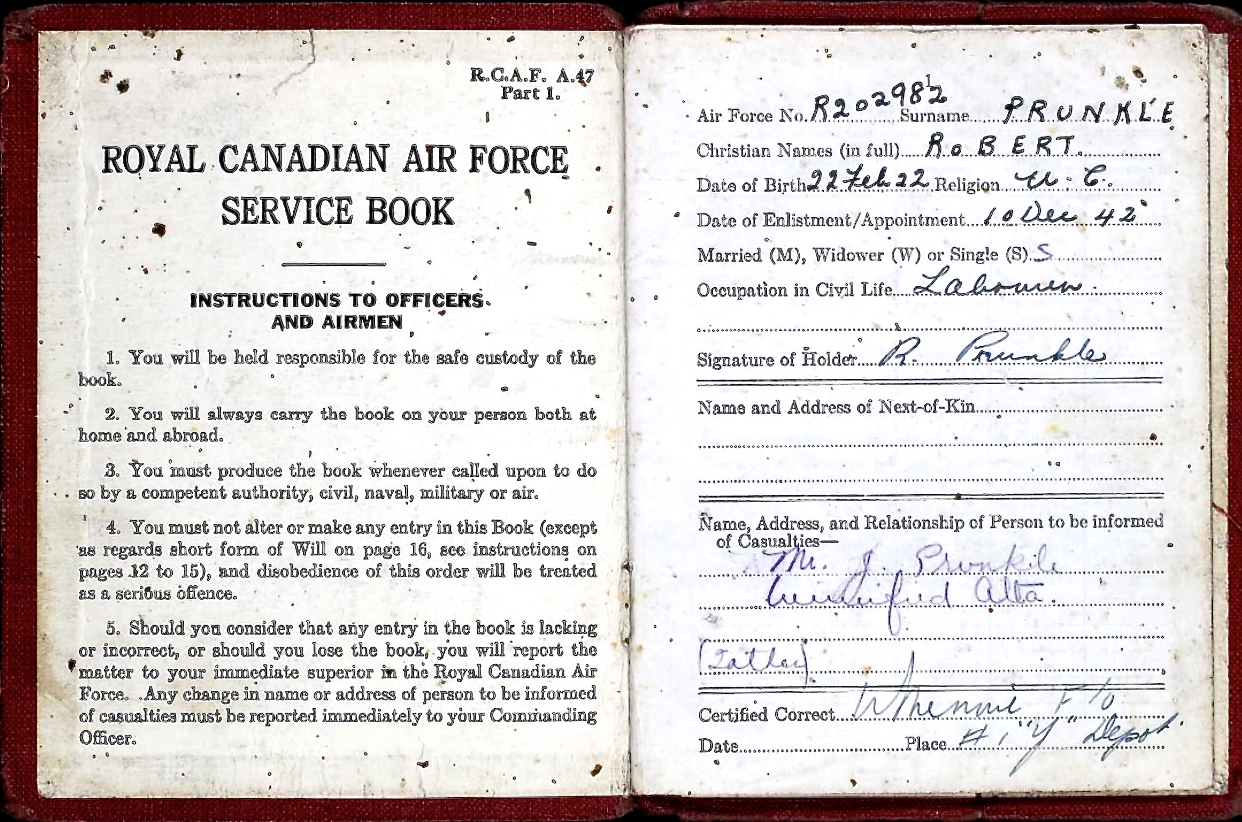 R.C.A.F. A.47
Part 1.
ROYAL CANADIAN AIR FORCE
SERVICE BOOK
INSTRUCTIONS TO OFFICERS
AND AIRMEN
1. You will be held responsible for the safe custody of the
book.
2. You will always carry the book on your person both at
home and abroad.
3. You must produce the book whenever called upon to do
so by a competent authority, civil, naval, military or air.
4. You must not alter or make any entry in this Book (except
as regards short form of Will on page 16, see instructions on
pages 12 to 15), and disobedience of this order will be treated
as a serious offence.
5. Should you consider that any entry in the book is lacking
or incorrect, or should you lose the book, you will report the
matter to your immediate superior in the Royal Canadian Air
Force. Any change in name or address of person to be informed
of casualties must be reported immediately to your Commanding
Officer.
Air Force No. R202982 Surname PRUNKLE
Christian Names (in full) ROBERT.
Date of Birth 22 Feb 22 Religion U.C.
Date of Enlistment/Appointment 10 Dec 42
Married (M), Widower (W) or Single (S). S
Occupation in Civil Life
Signature of Holder R. Prunkle
Name and Address of Next-of-Kin
Name, Address, and Relationship of Person to be informed
of Casualties—
Mr. J. Prunkle
Winnifred Alta.
(Father)
Certified Correct F/O
Date Place #1 "Y" Depot